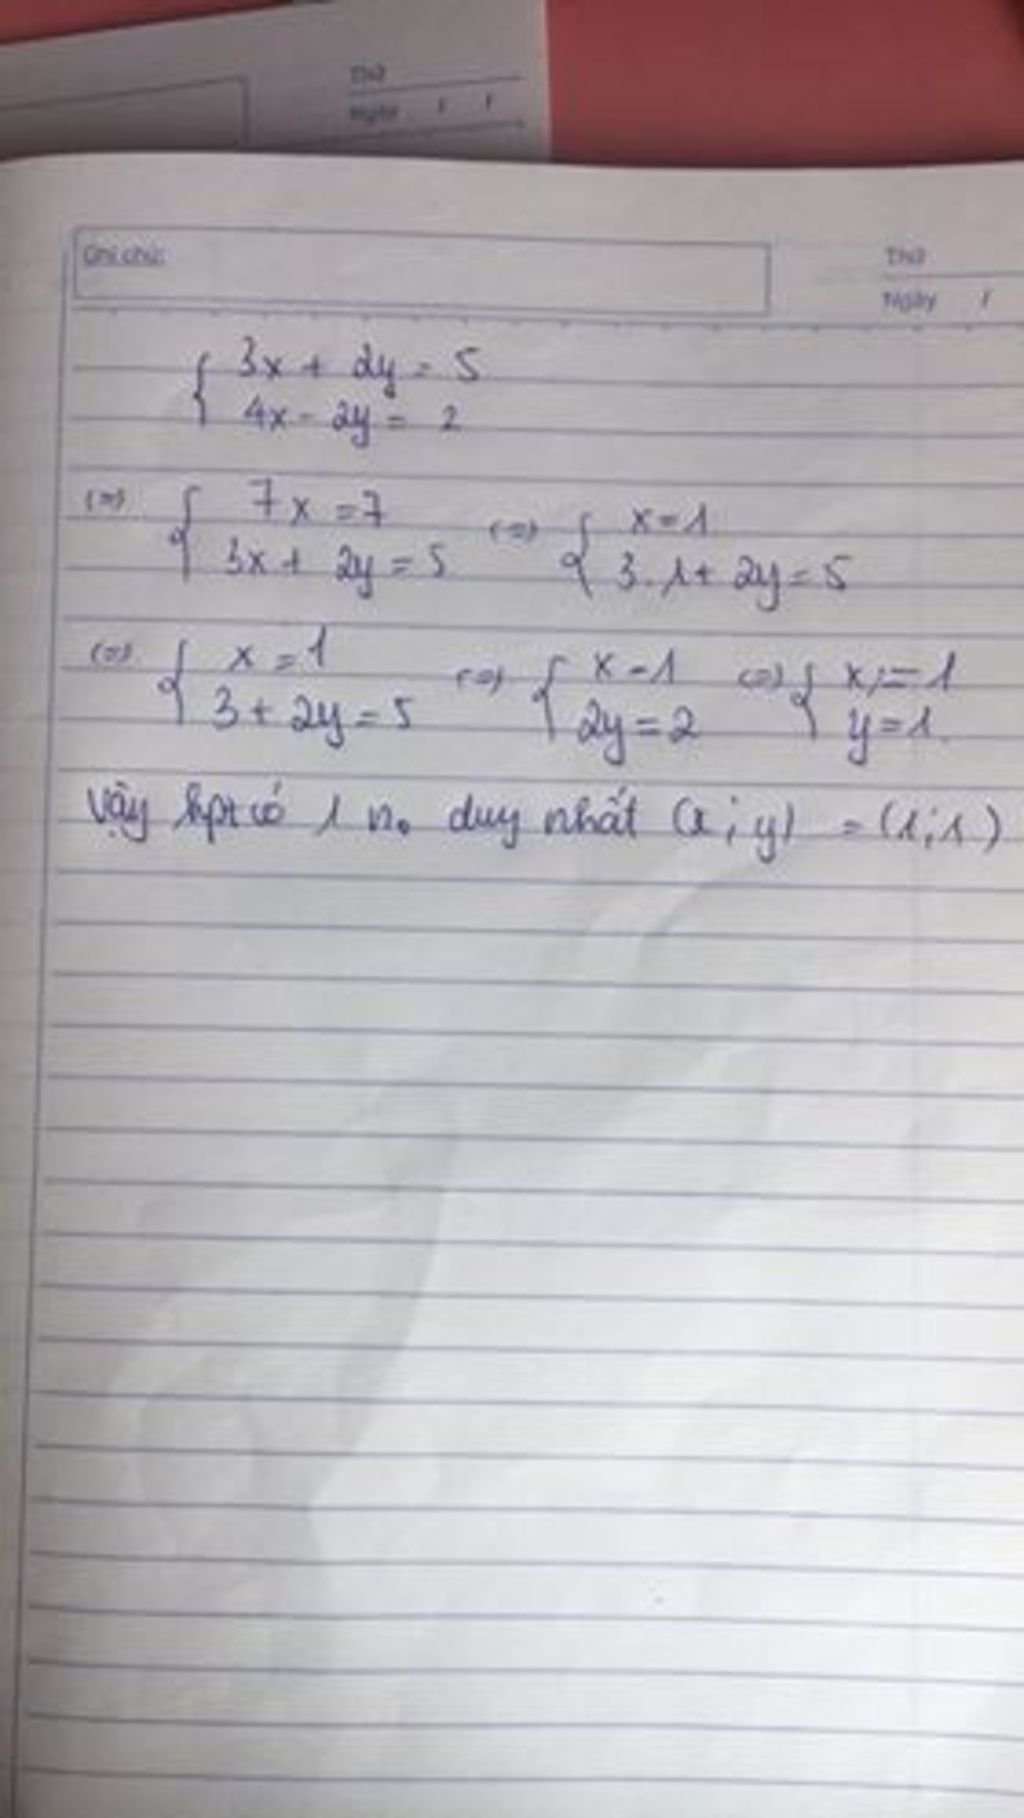 Thứ
Ngày / /
Ghi chú:
Thứ
Ngày /
{ 3x + 2y = 5
4x - 2y = 2
(=) { 7x = 7
3x + 2y = 5
(=) { x = 1
3.1 + 2y = 5
(=) { x = 1
3 + 2y = 5
(=) { x = 1
2y = 2
(=) { x = 1
y = 1
Vậy hpt có 1 no duy nhất (x; y) = (1; 1)